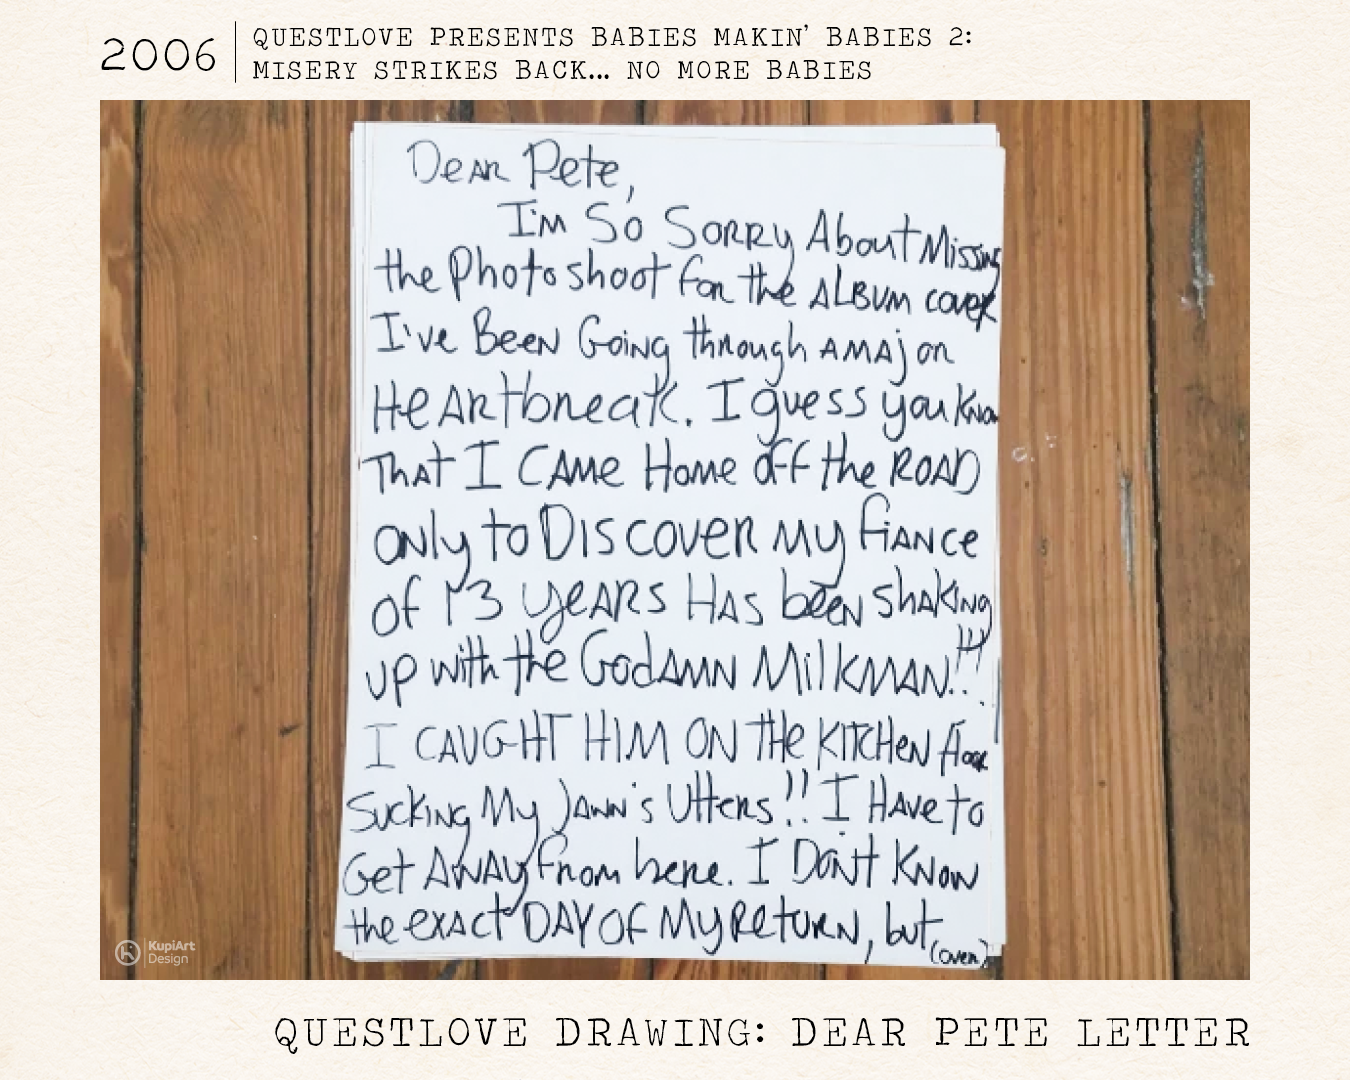 2006
QUESTLOVE PRESENTS BABIES MAKIN' BABIES 2:
MISERY STRIKES BACK... NO MORE BABIES
Dear Pete,
I'm So Sorry About Missing
the Photo shoot for the ALBUM cover
I've Been Going through A MAjor
HeArtbreak. I guess you Know
That I CAMe Home off the ROAD
only to Discover my fiance
of 13 yeARs HAs been shaking
up with the GodAMN MilkMAN!!!
I CAUGHT HIM ON THe KITCHen floor
Sucking My Jawn's Utters!! I HAve to
Get AWAY from here. I Don't Know
the exact DAY OF My ReTURN, but
(over)
KupiArt
Design
QUESTLOVE DRAWING: DEAR PETE LETTER